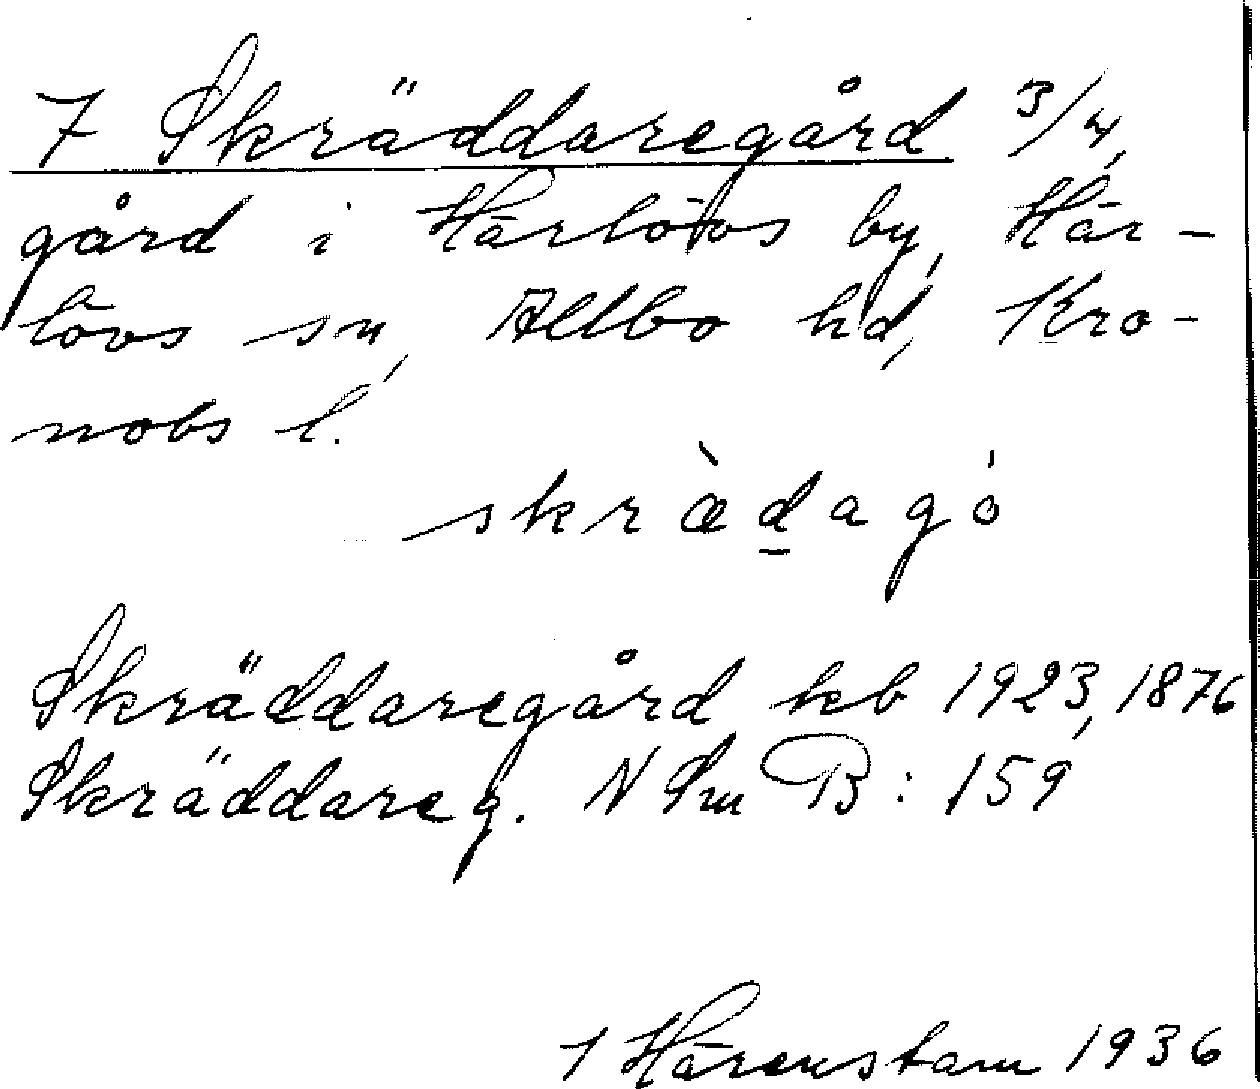 7 Skräddaregård 3/4,
gård i Härlövs by, Här-
lövs sn, Allbo hd, Kro-
nobs l.
skræ̀dagó
Skräddaregård kb 1923, 1876
Skräddareg. N Sm B: 159
1 Härenstam 1936